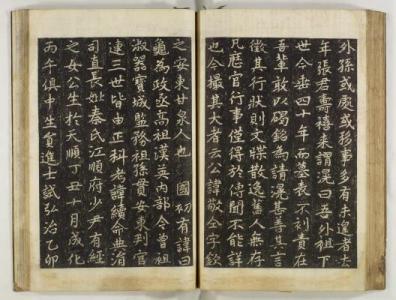 外孫或處或移事多有未遑者去
年張君壽禧來謂滉曰吾外祖下
世今垂四十年而墓表不刻責在
吾輩敢以碣銘為請滉甚善其言
徵其行狀則文牒散逸舊人無存
凡歷官行事僅得於傳聞不能詳
也今撮其大者云公諱敬仝字欽
之安東甘泉人也 國初有諱曰
龜為政丞高祖漢英內部令曾祖
淑器寶城監務祖孫贇安東判官
連三世皆由正科考諱績命典涓
司直長妣秦氏江順府少尹有經
之女公生於天順丁丑十月成化
丙午俱中生員進士試弘治乙卯